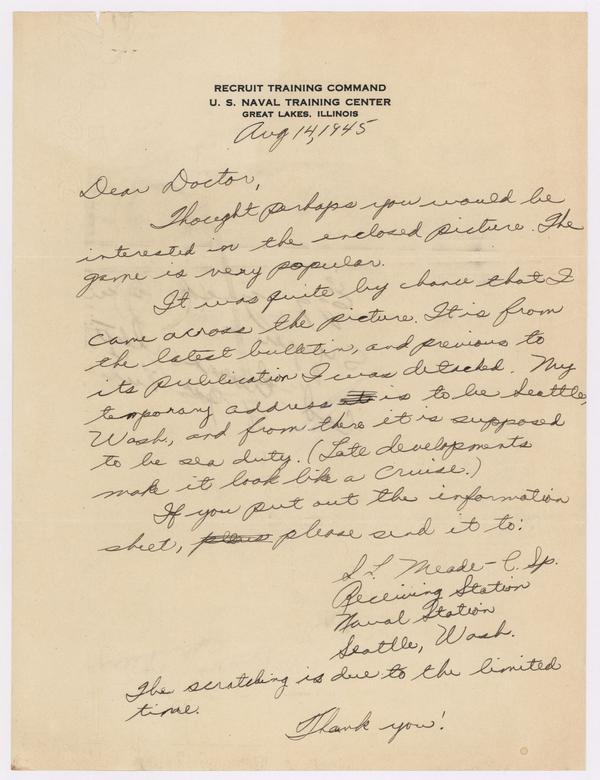 RECRUIT TRAINING COMMAND
U. S. NAVAL TRAINING CENTER
GREAT LAKES, ILLINOIS
Aug 14, 1945
Dear Doctor,
Thought perhaps you would be
interested in the enclosed picture. The
game is very popular.
It was quite by chance that I
came across the picture. It is from
the latest bulletin, and previous to
its publication I was detached. My
temporary address is to be Seattle,
Wash, and from there it is supposed
to be sea duty. (Late developments
make it look like a cruise.)
If you put out the information
sheet, please send it to:
S L Meade - C. Sp.
Receiving Station
Naval Station
Seattle, Wash.
The scratching is due to the limited
time.
Thank you!